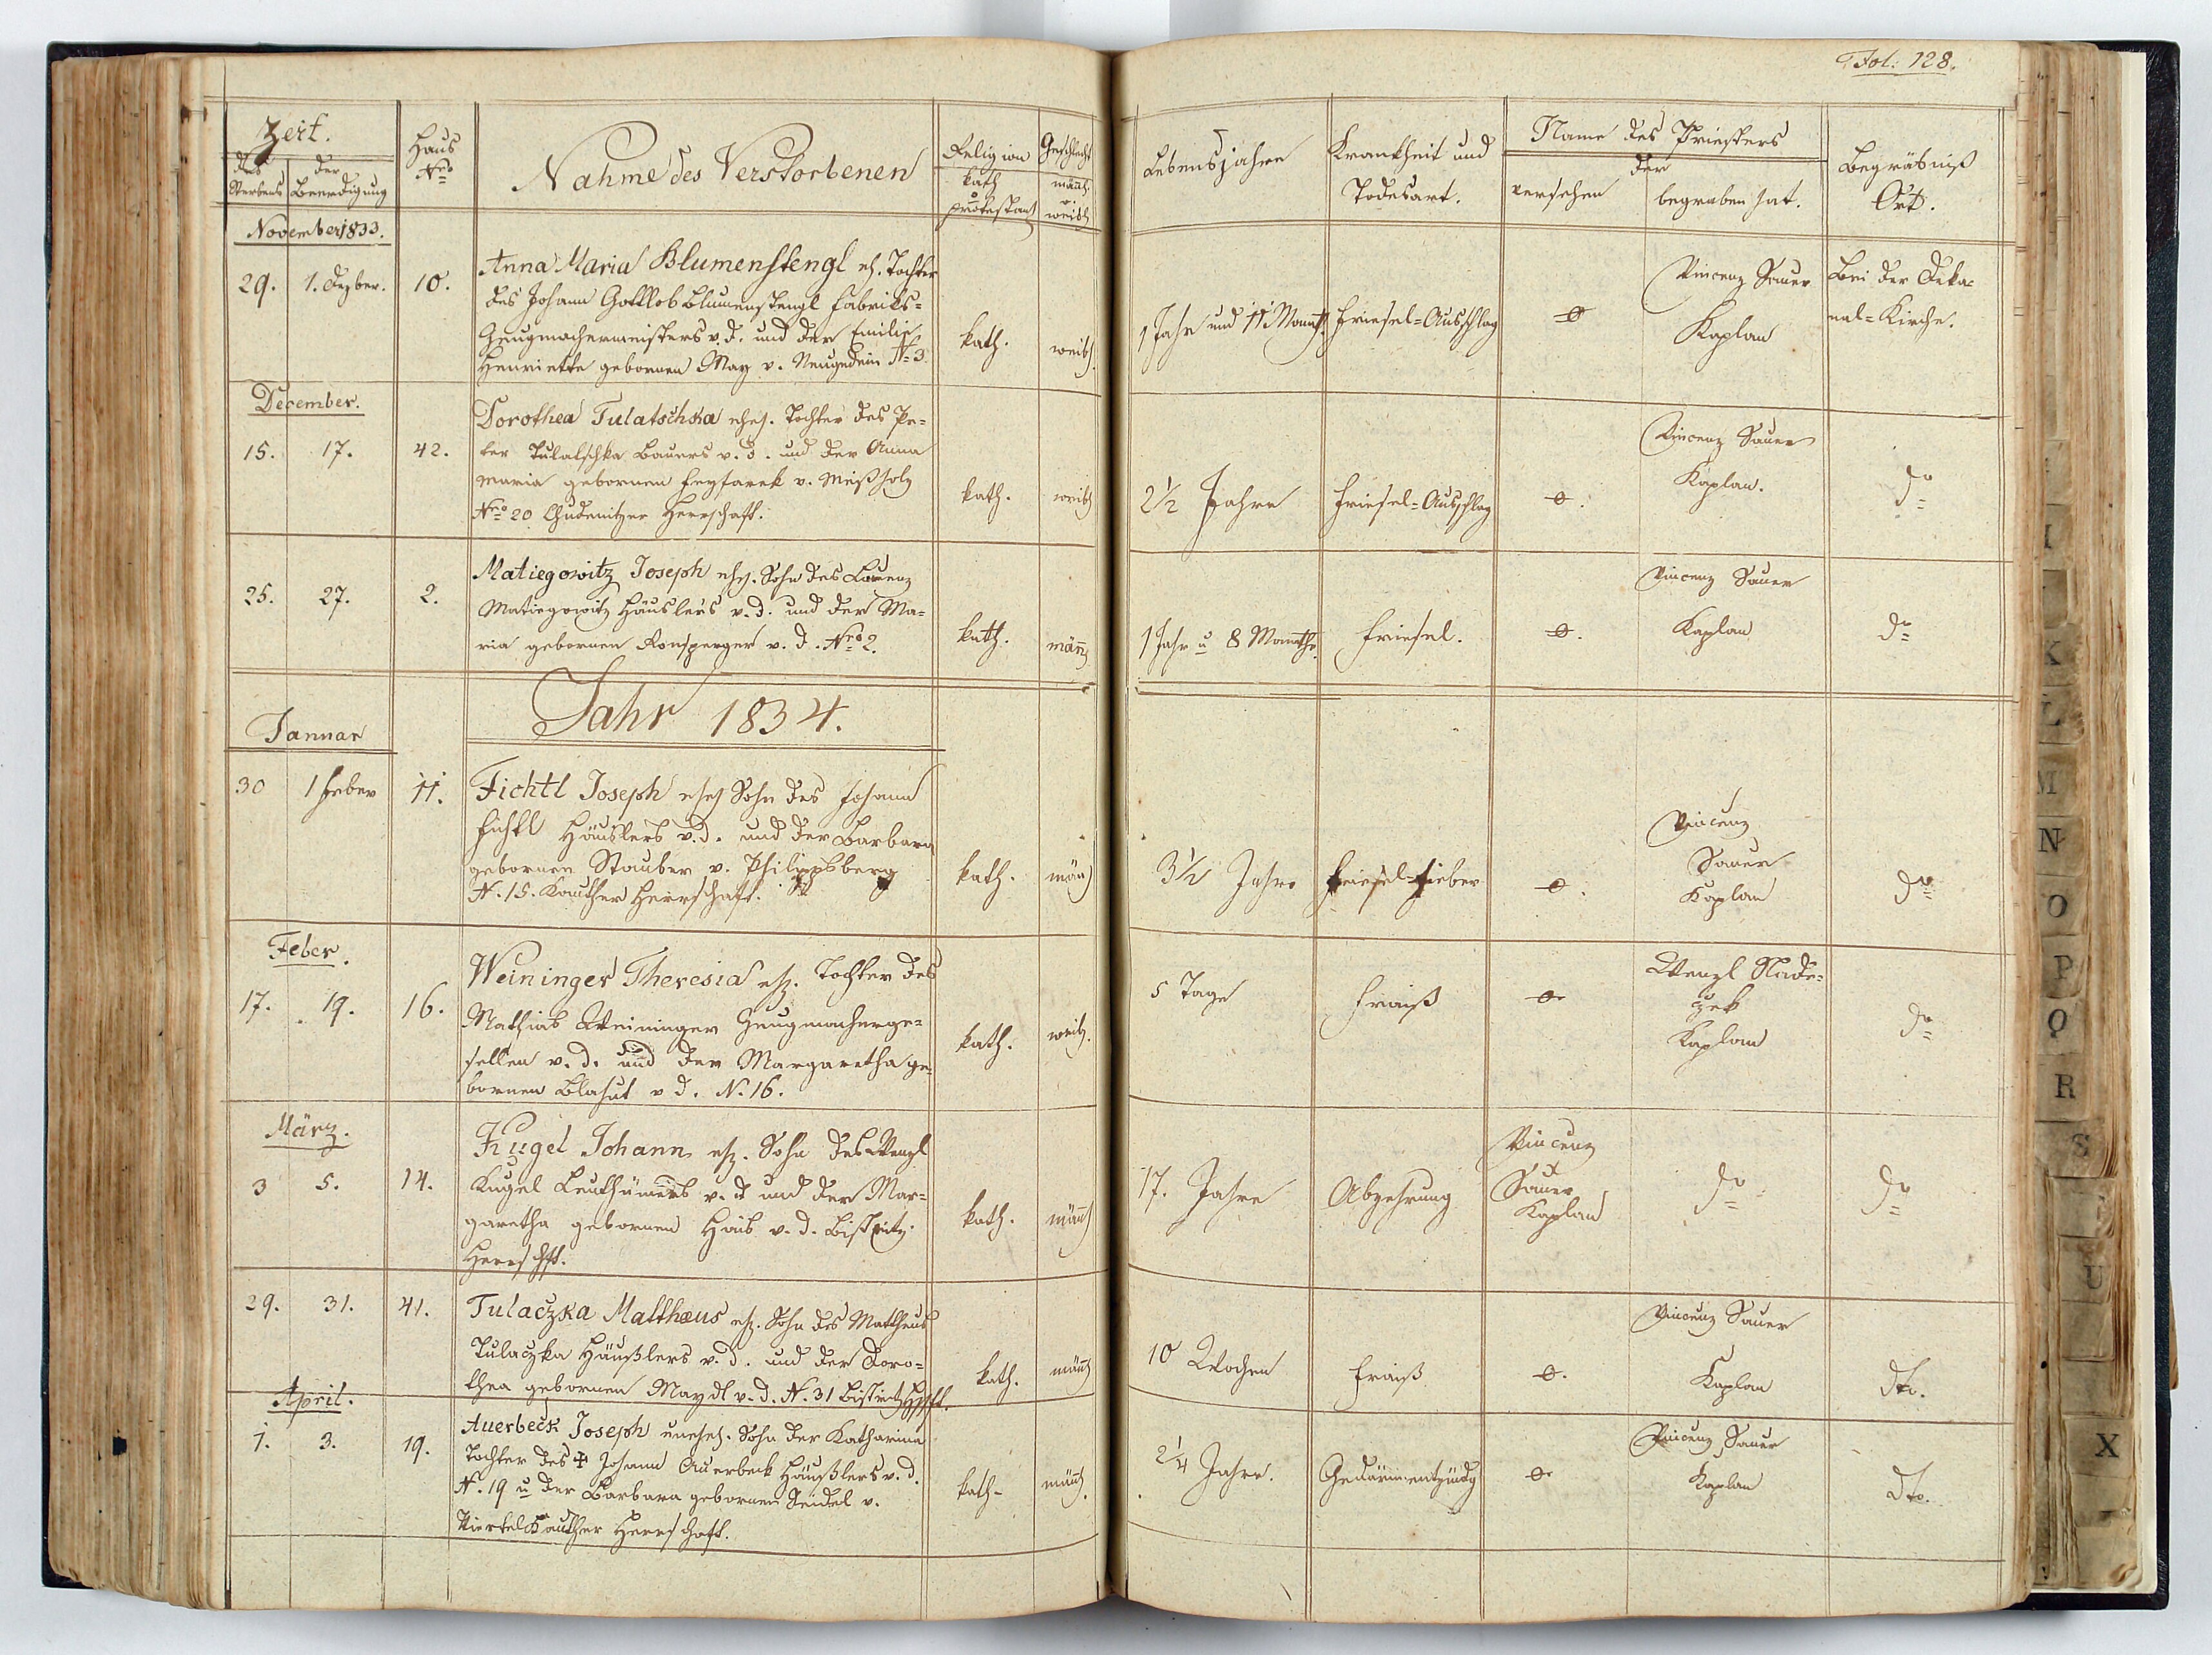 Fol: 128.
Zeit.
des Sterbens
der Beerdigung
Haus
Nro
Nahme des Verstorbenen
Religion
kath
o
protestant
Geschlecht
männ
o.
weibl
Lebensjahre
Krankheit und
Todesart.
Name des Priesters
der
versehen
begraben hat.
Begräbniß
Ort.
November 1833.
29. 1. Dezber. 10.
Anna Maria Blumenstengl eh. Tochter
des Johann Gottlob Blumenstengl Fabriks-
Zeugmachermeisters v. d. und der Emilie
Henriette gebornen May v. Neugedein N= 3.
kath. weibl.
1 Jahr und 11 Monath. Friesel-Ausschlag
Vincenz Sauer
Kaplan
Bei der Deka-
nal-Kirche.
December.
15. 17. 42.
Dorothea Tulatschka ehel. Tochter des Pe-
ter Tulatschka Bauers v. d. und der Anna
Maria gebornen v. Mißholz
Nro 20 Chudenitzer Herrschaft.
kath. weibl
2½ Jahre Friesel-Ausschlag
Vincenz Sauer
Kaplan.
do
25. 27. 2.
Matiegowitz Joseph ehel. Sohn des Lorenz
Matiegowitz Häuslers v. d. und der Ma-
ria gebornen Ronsperger v. d. Nro 2.
kath. männ
1 Jahr u 8 Monathe. Friesel.
Vincenz Sauer
Kaplan
do
Jahr 1834.
Januar
30 1 Feber 11.
Fichtl Joseph ehel Sohn des Johann
Fichtl Häuslers v. d. und der Barbara
gebornen Stauber v. Philippsberg
N. 15. Kauther Herrschaft.
kath. männ
3½ Jahre Friesel-Fieber
Vincenz
Sauer
Kaplan
do
Feber.
17. 19. 16.
Weininger Theresia eh. Tochter des
Mathias Weininger Zeugmacherge-
sellen v. d. und der Margaretha ge-
bornen Blahut v d. N. 16.
kath. weibl.
5 Tage Fraiß
Wenzl Slade-
czek
Kaplan
do
März.
3 5. 14.
Kugel Johann eh. Sohn des Wenzl
Kugel v. d und der Mar-
garetha gebornen Hais v. d. Bistritz.
Herrschft.
kath. männ
17. Jahre Abzehrung
Vincenz
Sauer
Kaplan
do
do
29. 31. 41.
Tulaczka Matthæus eh. Sohn des Mattheus
Tulaczka Häußlers v. d. und der Doro-
thea gebornen Maydl v. d. N. 31 Bistritz Hschft.
kath. männ
10 Wochen Fraiß
Vincenz Sauer
Kaplan
dto.
April.
1. 3. 19.
Auerbeck Joseph unehel. Sohn der Katharina
Tochter des † Johann Auerbeck Häußlers v. d.
N. 19 u der Barbara gebornen Seidel v.
Viertel Kauther Herrschaft.
kath- männ.
2¼ Jahre. Gedärmentzündg
Vincenz Sauer
Kaplan
dto.
I
K
L
M
N
O
P
Q
R
S
U
X